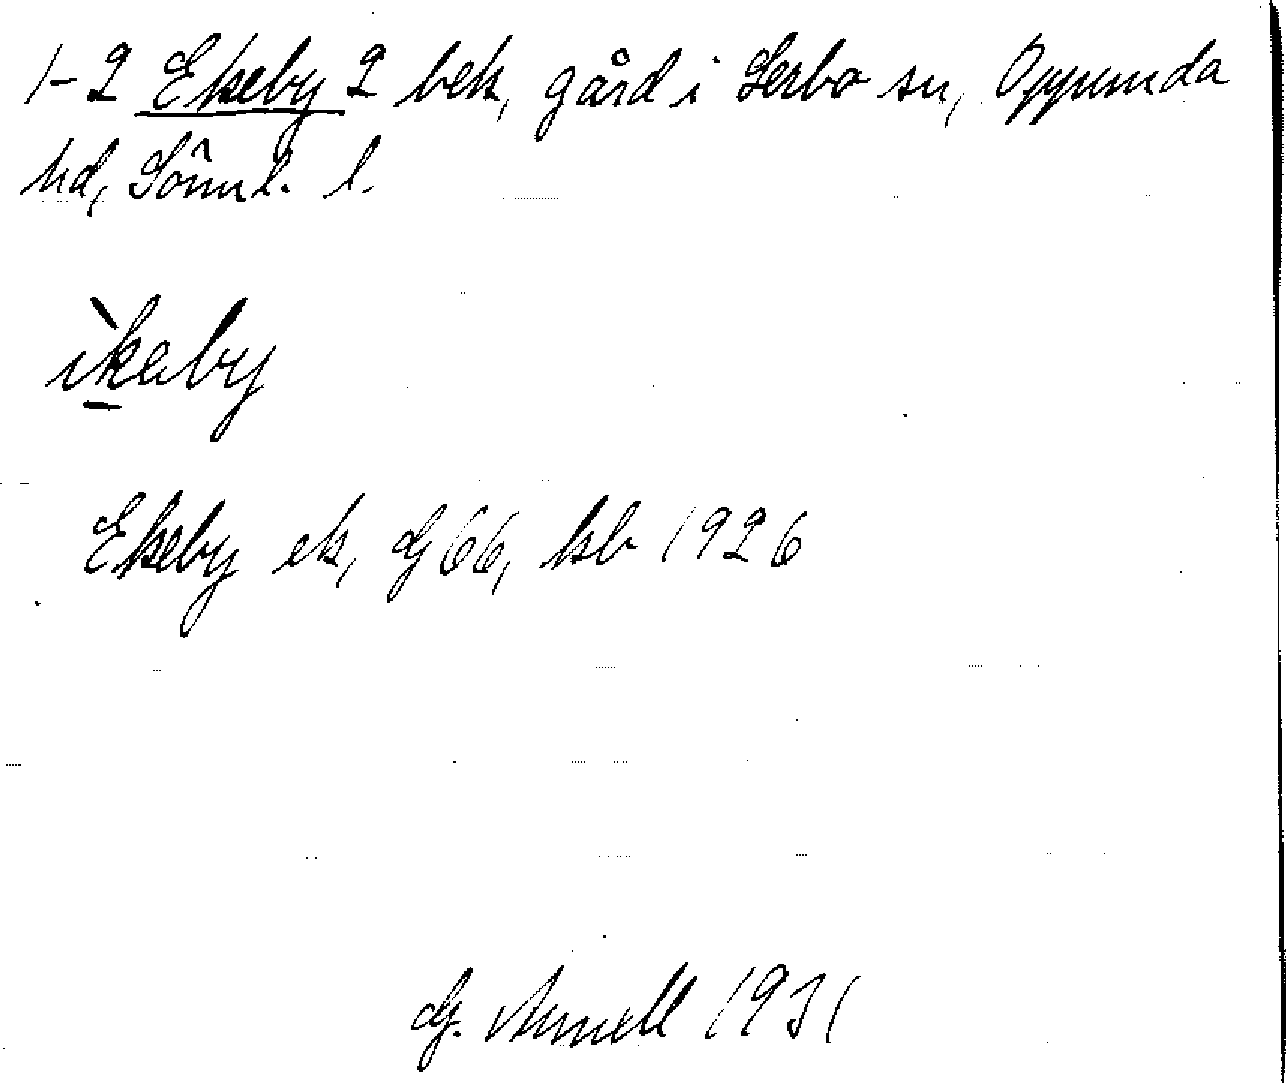 1-2 Ekeby 2 bek, gård i Lerbo sn, Oppunda
hd, Söml. l.
ìkeby
Ekeby ek, GJ 66, ksb 1926
G. Arnell 1931